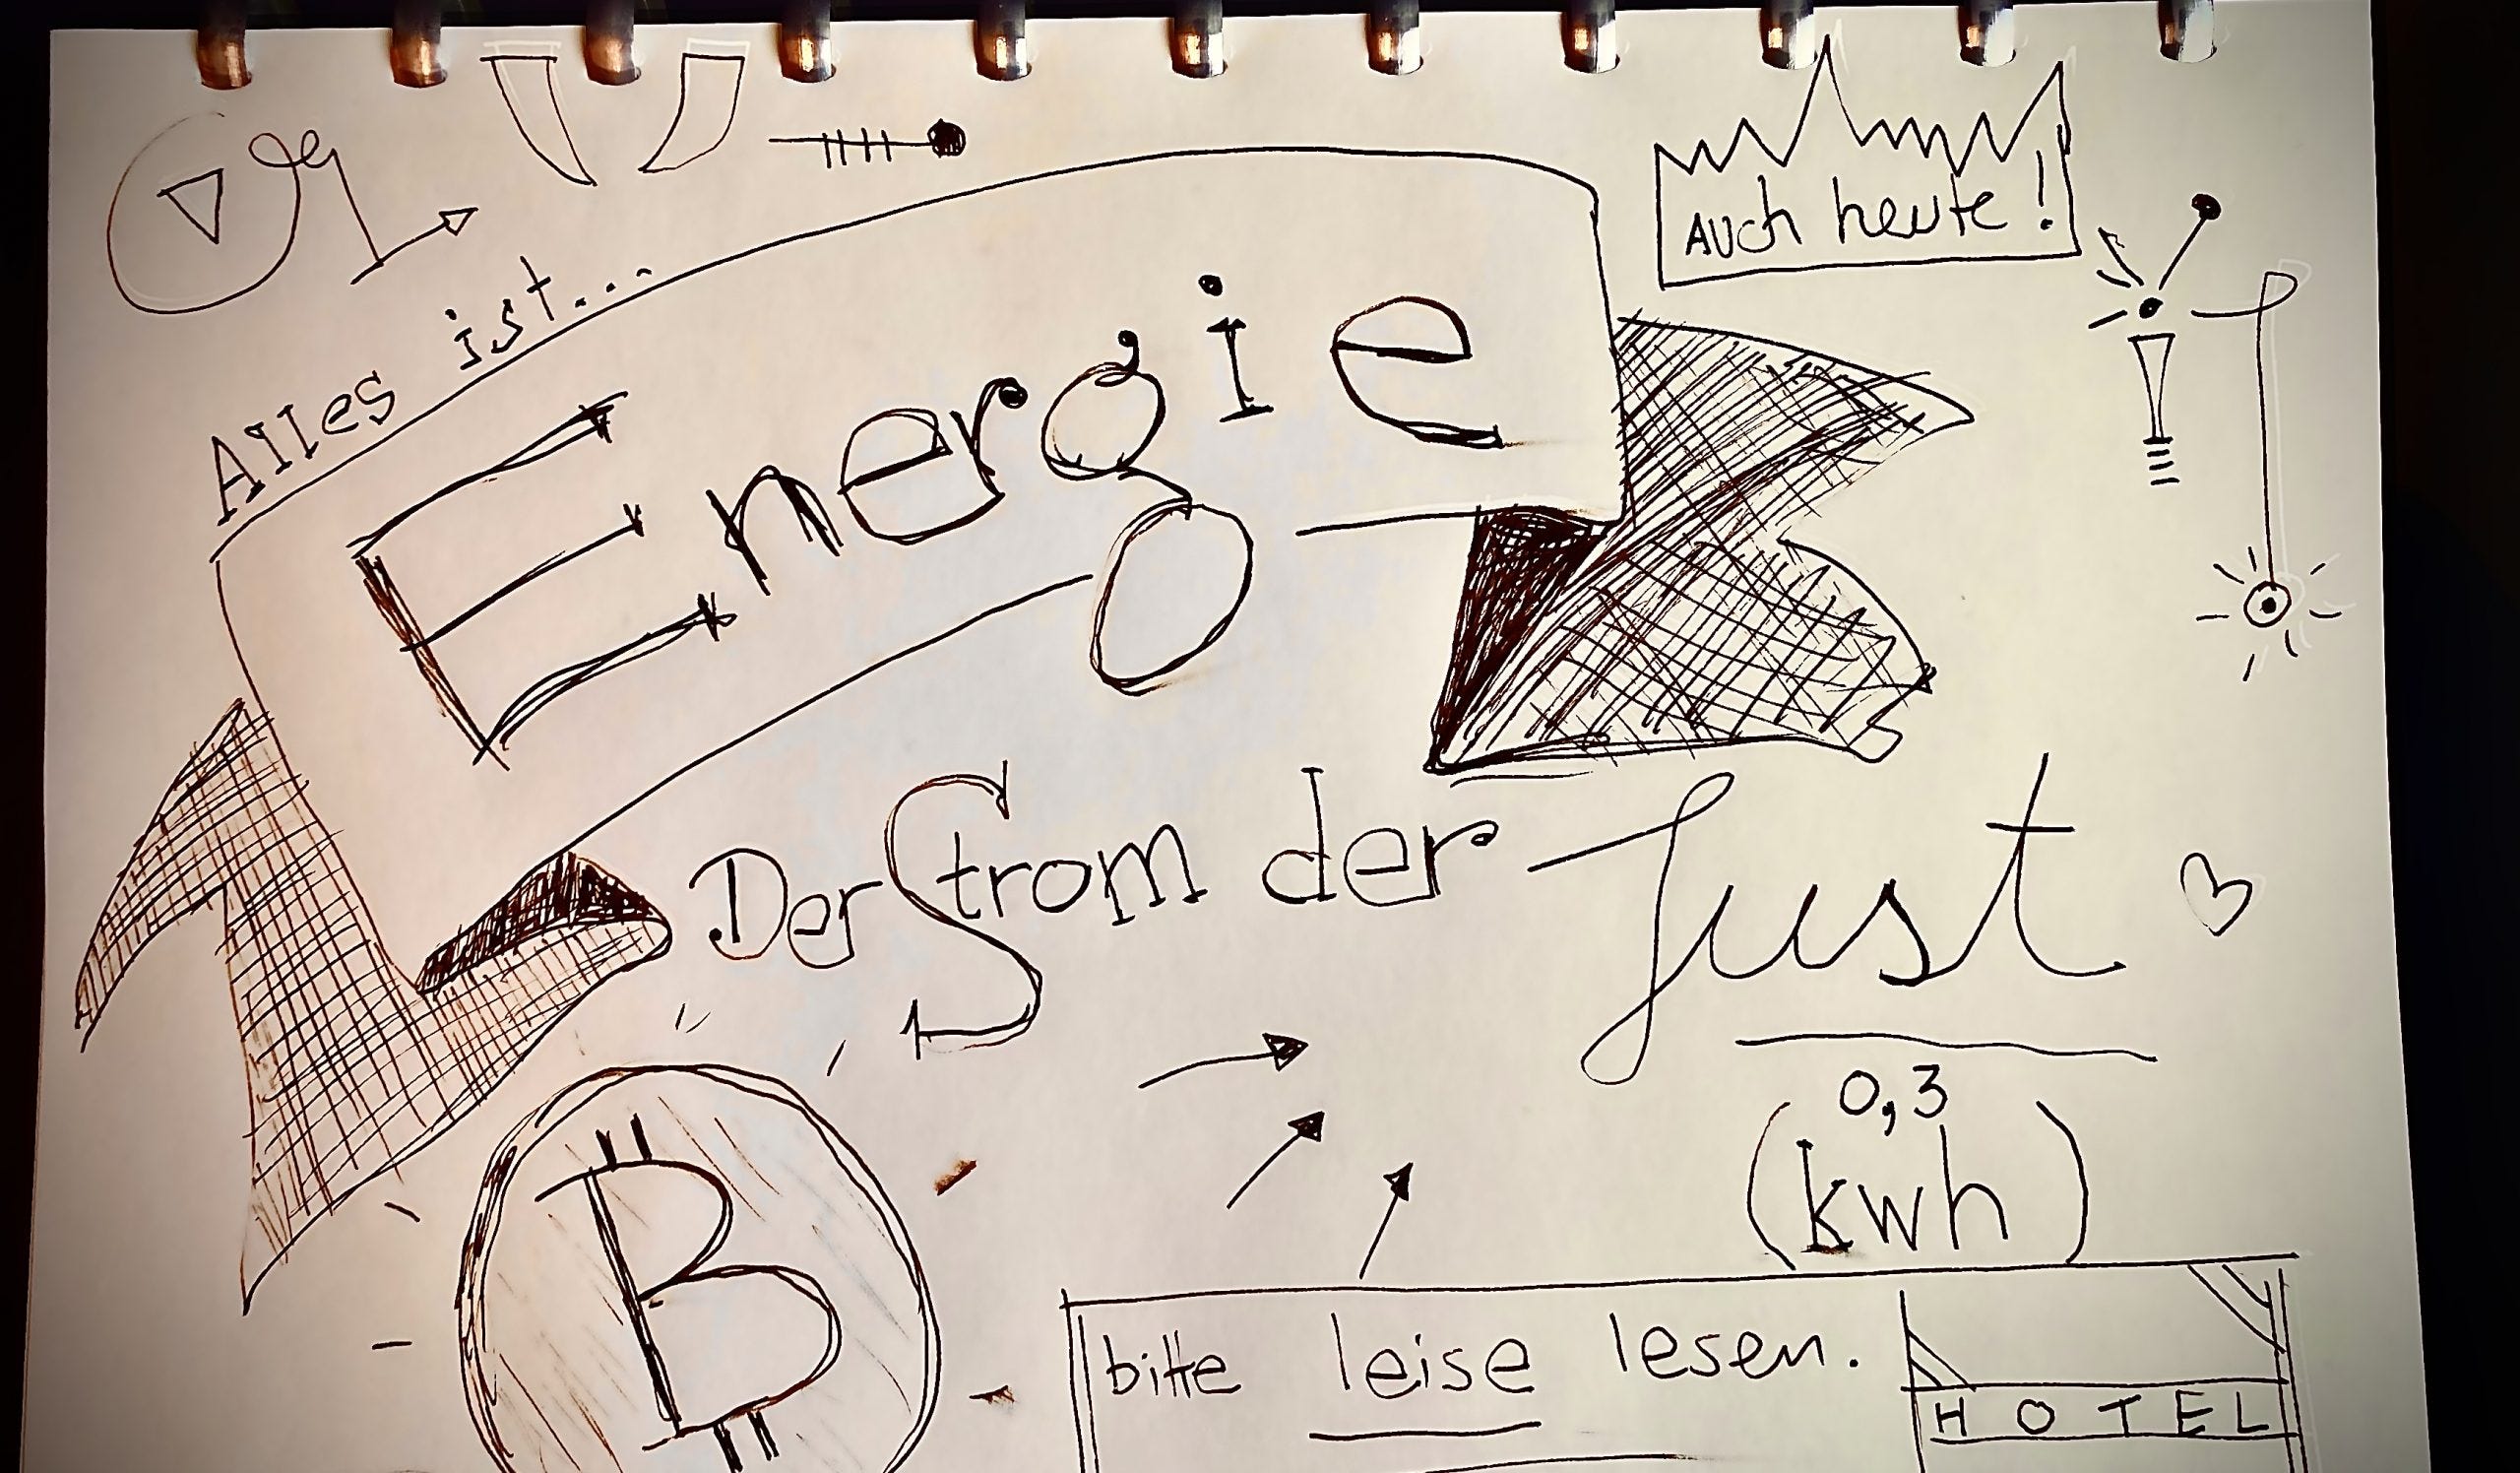 Auch heute!
Alles ist...
Energie
Der Strom der Lust
0,3
(kwh)
₿
bitte leise lesen.
HOTEL